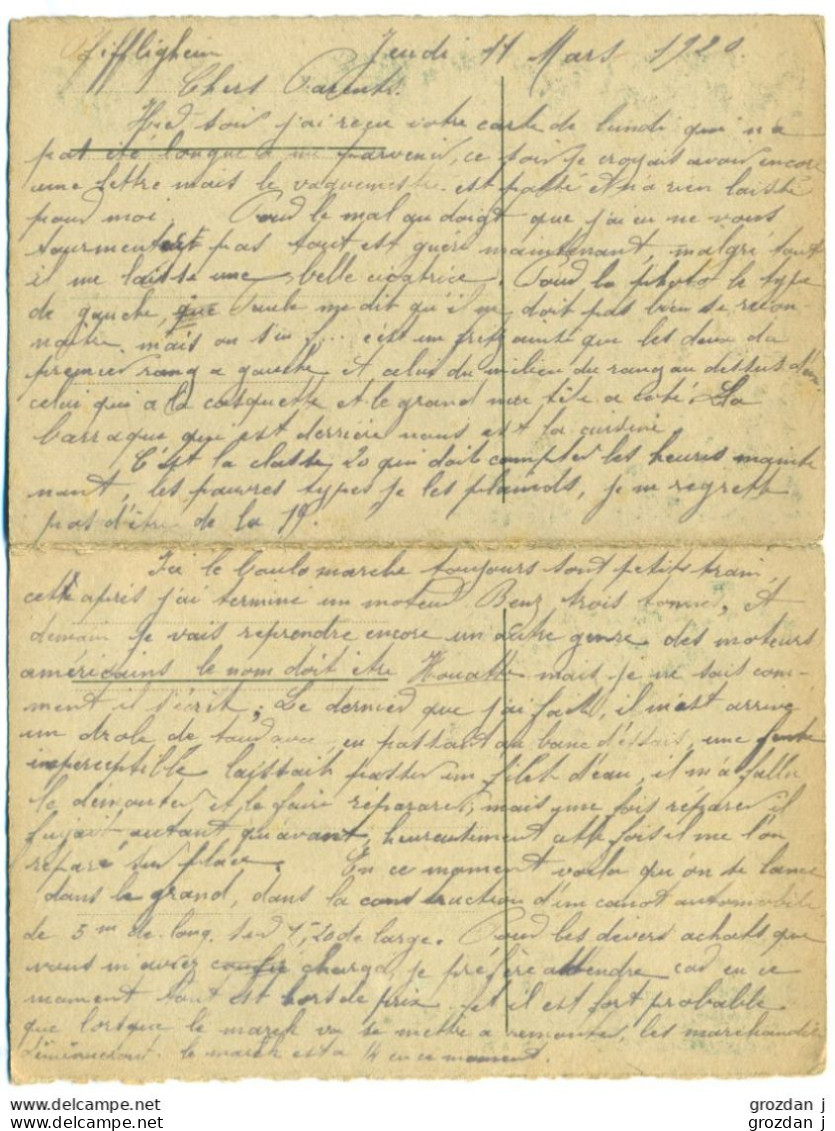 Pfiffligheim Jeudi 11 Mars 1920.
Chers Parents.
Hier soir j'ai reçu votre carte de lundi qui n'a
pas été longue à me parvenir, ce soir je croyais avoir encore
une lettre mais le vaguemestre est passé et n'a rien laissé
pour moi. Pour le mal au doigt que j'ai eu ne vous
tourmentait pas tout est guéri maintenant, malgré tout
il me laisse une belle cicatrice. Pour la photo le type
de gauche, que me dit qu'il ne doit pas bien se recon-
naître, mais on s'en f.... c'est un ainsi que les deux du
premier rang a gauche et celui du milieu du rang au dessus d'eux
celui qui a la casquette et le grand nue tête a coté. La
barraque qui est derrière nous est la cuisine.
C'est la classe 20 qui doit compter les heures mainte
nant, les pauvres types je les plains, je ne regrette
pas d'être de la 19.
Ici le boulo marche toujours sont petits train,
cette après j'ai terminé un moteur Benz trois tonnes, et
demain je vais reprendre encore un autre genre des moteurs
américains le nom doit être Houatte mais je ne sais com-
ment il s'écrit; Le dernier que j'ai fait, il m'est arrivé
un drole de tour, en passant au banc d'essais, une fente
imperceptible laissait passer un filet d'eau, il m'a fallu
le démonter et le faire réparer, mais une fois réparer il
fuyait autant qu'avant, heureusement cette fois il me l'on
réparé sur place. En ce moment voila qu'on se lance
dans le grand, dans la construction d'un canot automobile
de 5m de long. sur 1,20 de large. Pour les divers achats que
vous m'aviez chargé, je préfère attendre car en ce
moment tout est hors de prix et il est fort probable
que lorsque le marck va se mettre a remonter, les marchandises
diminueront. le marck est a 1/4 en ce moment.
grozdan j
grozdan j